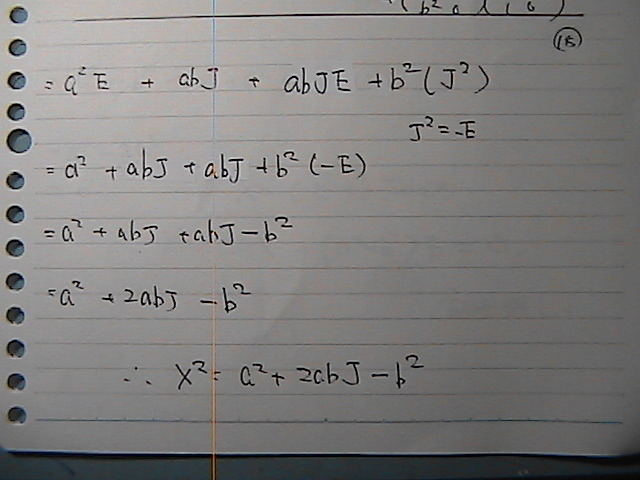 (b² 0
= a²E + abJ + abJE + b²(J²)
J² = -E
= a² + abJ + abJ + b²(-E)
= a² + abJ + abJ - b²
= a² + 2abJ - b²
∴ X² = a² + 2abJ - b²